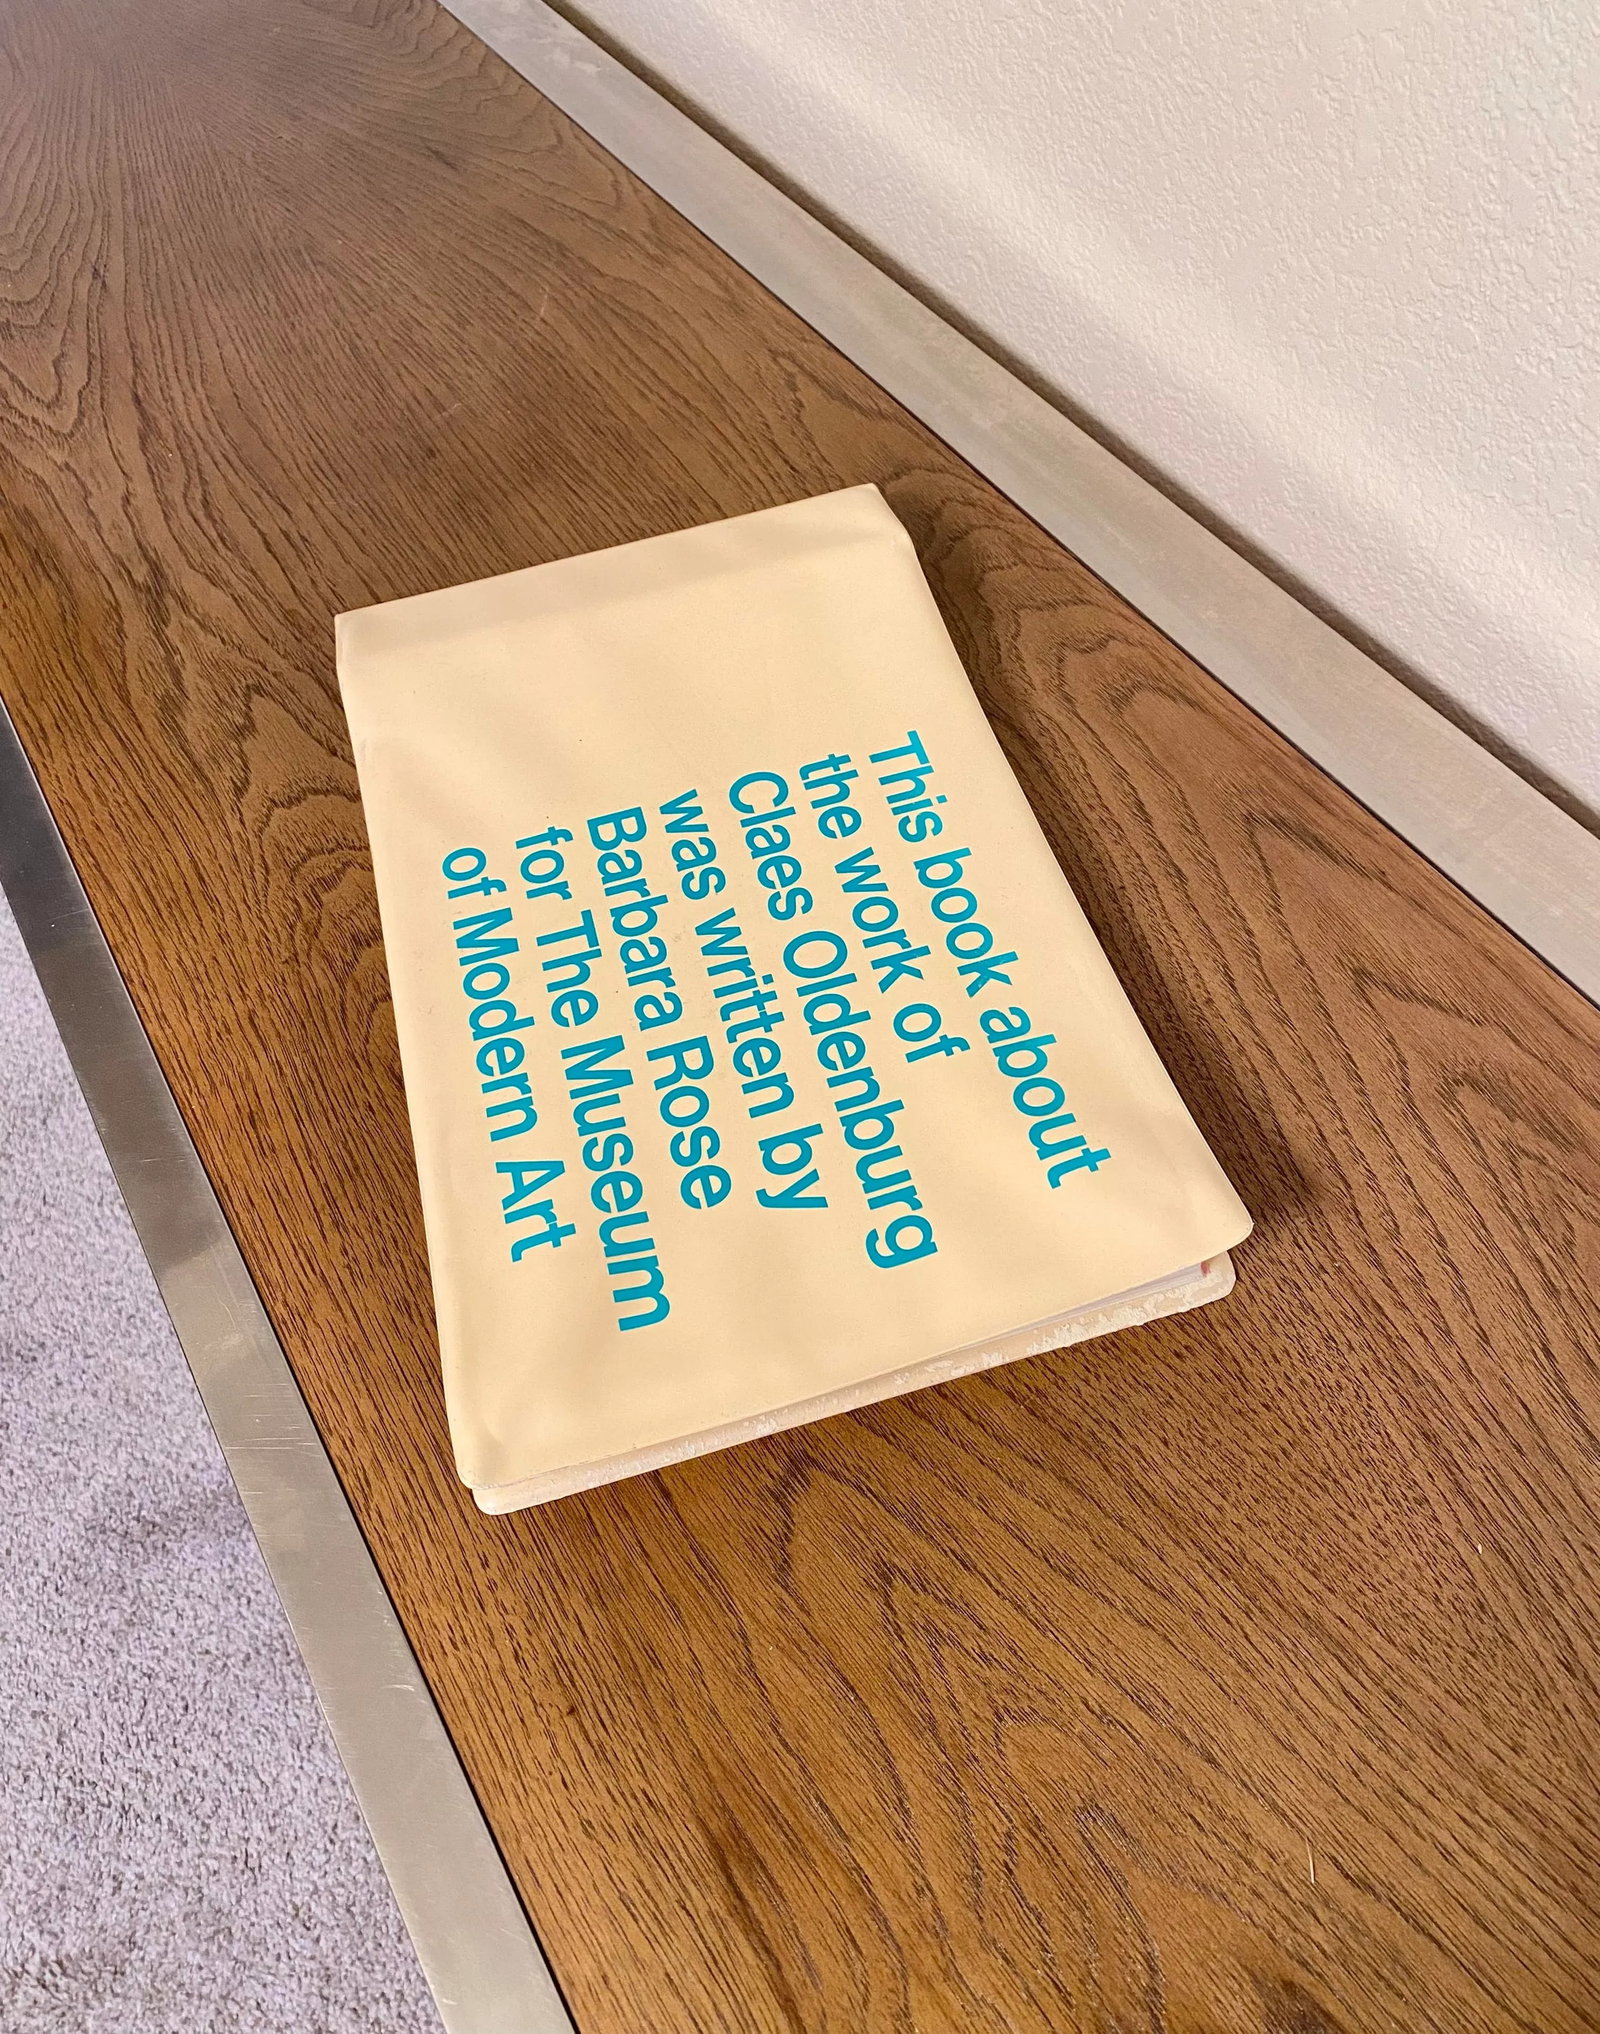 This book about
the work of
Claes Oldenburg
was written by
Barbara Rose
for The Museum
of Modern Art